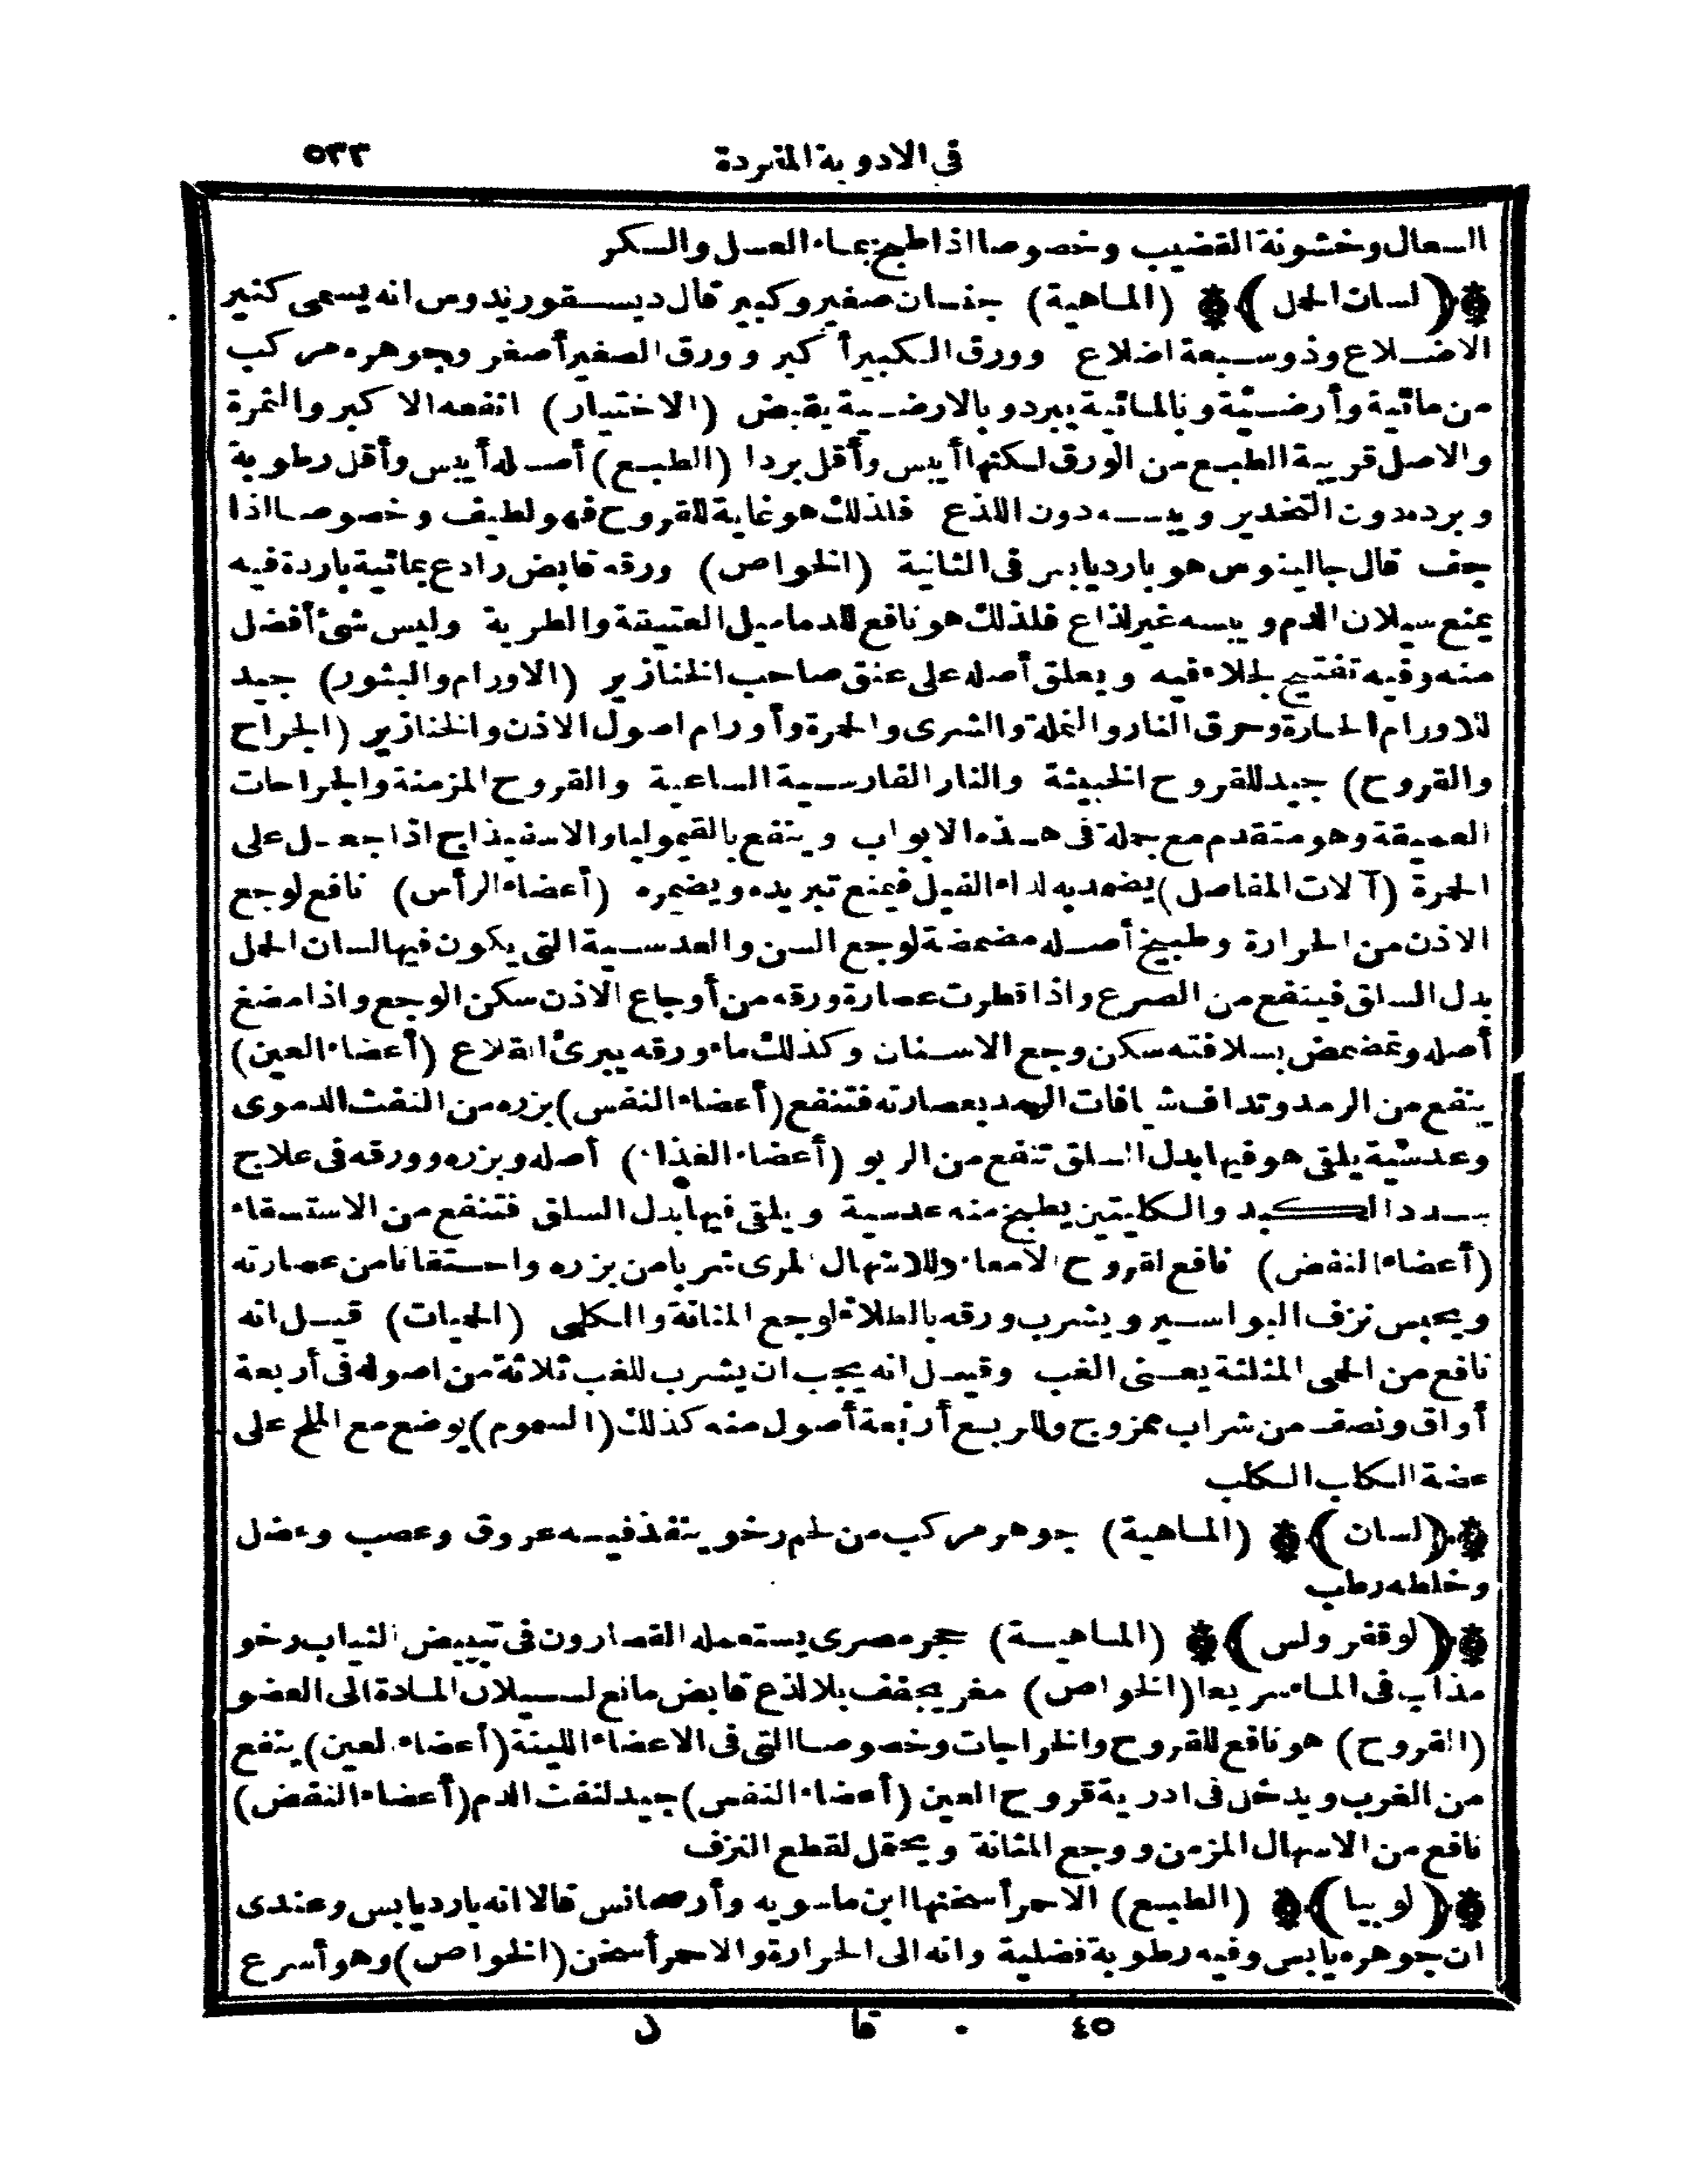 في الادوية المفردة ٥٣٣
السعال وخشونة القضيب وخصوصا اذا طبخ بماء العسل والسكر
﴿لسان الحمل﴾ (الماهية) جنسان صغير وكبير قال ديسقوريدوس انه يسمى كثير
الاضلاع وذو سبعة اضلاع وورق الكبير أكبر وورق الصغير أصغر وجوهره مركب
من مائية وأرضية وبالمائية يبرد وبالارضية يقبض (الاختيار) انفعه الاكبر والثمرة
والاصل قريبة الطبع من الورق لكنها أيبس وأقل بردا (الطبع) أصله أيبس وأقل رطوبة
وبرده دون التخدير ويبسه دون اللذع فلذلك هو غاية للقروح فهو لطيف وخصوصا اذا
جف قال جالينوس هو بارد يابس في الثانية (الخواص) ورقه قابض رادع بمائية باردة فيه
يمنع سيلان الدم ويبسه غير لذاع فلذلك هو نافع للدماميل العتيقة والطرية وليس شئ أفضل
منه وفيه تفتيح لجلاء فيه ويعلق أصله على عنق صاحب الخنازير (الاورام والبثور) جيد
للاورام الحارة وحرق النار والنملة والشرى والحمرة وأورام اصول الاذن والخنازير (الجراح
والقروح) جيد للقروح الخبيثة والنار الفارسية الساعية والقروح المزمنة والجراحات
العميقة وهو متقدم مع جملة في هذه الابواب وينفع بالقيموليا والاسفيذاج اذا جعل على
الحمرة (آلات المفاصل) يضمد به لداء الفيل فيمنع تبريده ويضمره (أعضاء الرأس) نافع لوجع
الاذن من الحرارة وطبيخ أصله مضمضة لوجع السن والعدسية التي يكون فيها لسان الحمل
بدل السلق فينفع من الصرع واذا قطرت عصارة ورقه من أوجاع الاذن سكن الوجع واذا مضغ
أصله وتمضمض بسلاقته سكن وجع الاسنان وكذلك ماء ورقه يبرئ القلاع (أعضاء العين)
ينفع من الرمد وتداف شيافات الرمد بعصارته فتنفع (أعضاء النفس) بزره من النفث الدموى
وعدسية يلقى هو فيها بدل السلق تنفع من الربو (أعضاء الغذاء) أصله وبزره وورقه في علاج
سدد الكبد والكليتين يطبخ منه عدسية ويلقى فيها بدل السلق فتنفع من الاستسقاء
(أعضاء النفض) نافع لقروح الامعاء وللاسهال المرى شربا من بزره واحتقانا من عصارته
ويحبس نزف البواسير ويشرب ورقه بالطلاء لوجع المثانة والكلى (الحميات) قيل انه
نافع من الحمى المثلثة يعنى الغب وقيل انه يجب ان يشرب للغب ثلاثة من اصوله في أربعة
أواق ونصف من شراب ممزوج وللربع أربعة أصول منه كذلك (السموم) يوضع مع الملح على
عضة الكلب الكلب
﴿لسان﴾ (الماهية) جوهر مركب من لحم رخو ينفذ فيه عروق وعصب وعضل
وخلطه رطب
﴿لوقفرولس﴾ (الماهية) حجر مصرى يستعمله القصارون في تبييض الثياب رخو
مذاب في الماء سريعا (الخواص) مغر يجفف بلا لذع قابض مانع لسيلان المادة الى العضو
(القروح) هو نافع للقروح والخراجات وخصوصا التي في الاعضاء اللينة (أعضاء العين) ينفع
من الغرب ويدخل في ادوية قروح العين (أعضاء النفس) جيد لنفث الدم (أعضاء النفض)
نافع من الاسهال المزمن ووجع المثانة ويحتمل لقطع النزف
﴿لوبيا﴾ (الطبع) الاحمر أسخنها ابن ماسويه وأرجحانس قالا انه بارد يابس وعندى
ان جوهره يابس وفيه رطوبة فضلية وانه الى الحرارة والاحمر أسخن (الخواص) وهو أسرع
٤٥ قا ل